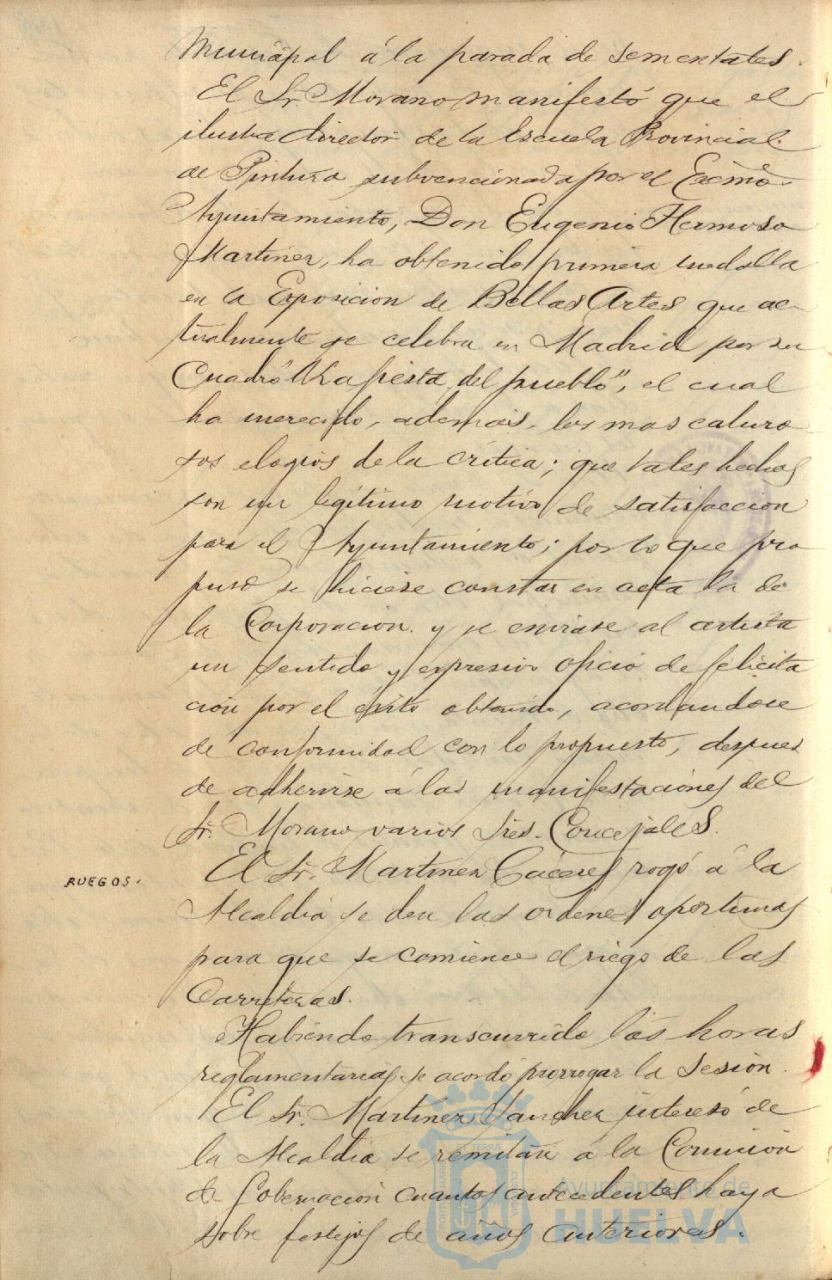 Municipal á la parada de sementales.
El Sr. Morano manifestó que el
ilustre director de la Escuela Provincial
de Pintura subvencionada por el Excmo.
Ayuntamiento, Don Eugenio Hermoso
Martinez, ha obtenido primera medalla
en la Exposicion de Bellas Artes que ac-
tualmente se celebra en Madrid por su
Cuadro "La fiesta del pueblo", el cual
ha merecido, además, los mas caluro
sos elogios de la crítica; que tales hechos
son un legítimo motivo de satisfaccion
para el Ayuntamiento; por lo que pro
puso se hiciese constar en acta la de
la Corporacion y se enviase al artista
un sentido y expresivo oficio de felicita
ción por el éxito obtenido, acordandose
de conformidad con lo propuesto, despues
de adherirse á las manifestaciones del
Sr. Morano varios Sres. Concejales.
RUEGOS.
El Sr. Martinez Cáceres rogó á la
Alcaldia se den las ordenes oportunas
para que se comience el riego de las
Carreteras.
Habiendo transcurrido las horas
reglamentarias, se acordó prorrogar la Sesión.
El Sr. Martinez Sanchez interesó de
la Alcaldía se remitan á la Comisión
de Gobernación cuantos antecedentes haya
sobre festejos de años anteriores.
Ayuntamiento de
HUELVA